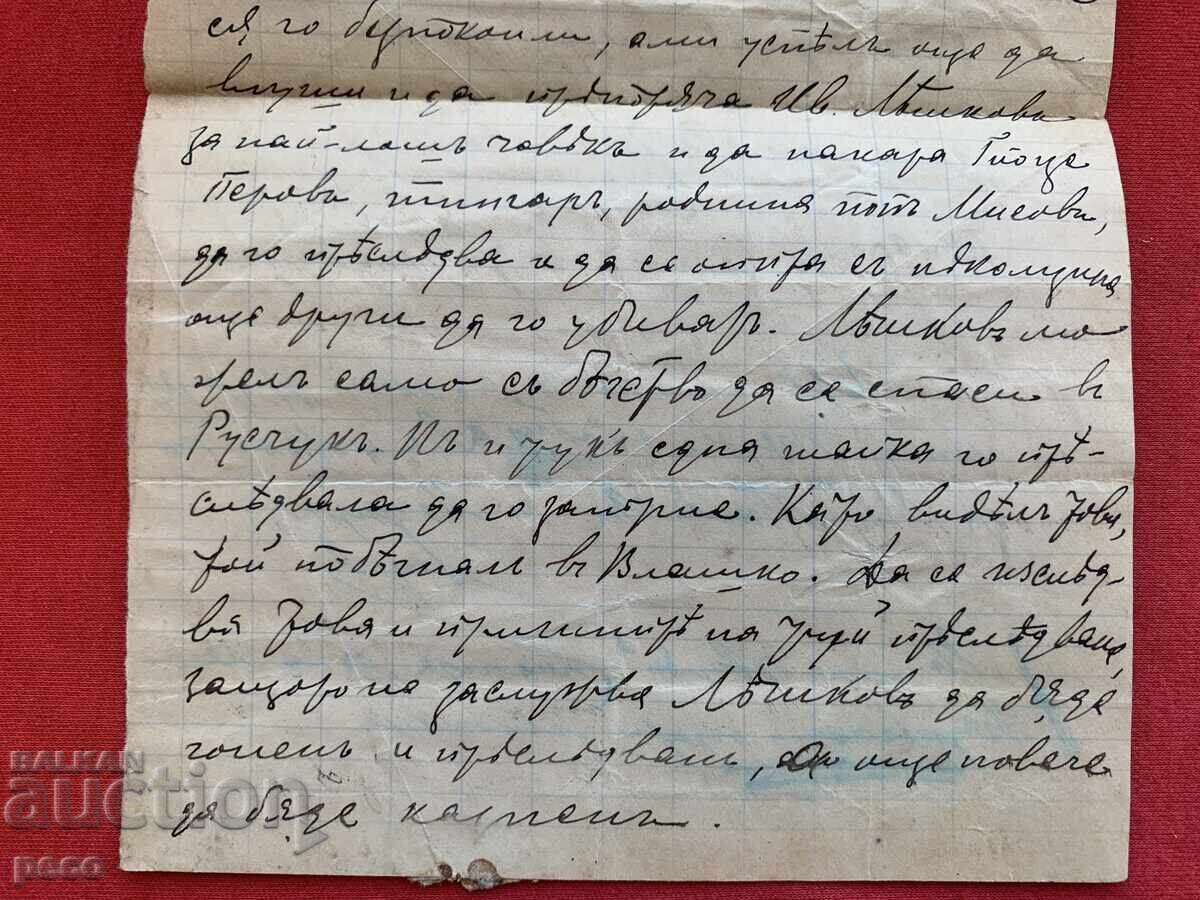 ся го безпокоили, ами успѣлъ още да
и да Ив. Лѣшковъ
за най-лошъ човѣкъ и да накара Гьоще
Перовъ, родния попъ Мисовъ,
да го прѣслѣдва и да се опита съ неколцина
още други да го убиватъ. Лѣшковъ мо
желъ само съ бѣгство да се спаси въ
Русчукъ. Нъ и тукъ една шайка го прѣ-
слѣдвала да го затрие. Като видѣлъ това,
той побѣгналъ въ Влашко. Да се изслѣд-
ва това и причинитѣ на прѣслѣдване,
защото не заслужва Лѣшковъ да бѫде
гоненъ и прѣслѣдванъ, а още повече
да бѫде
BALKAN
auction
peco